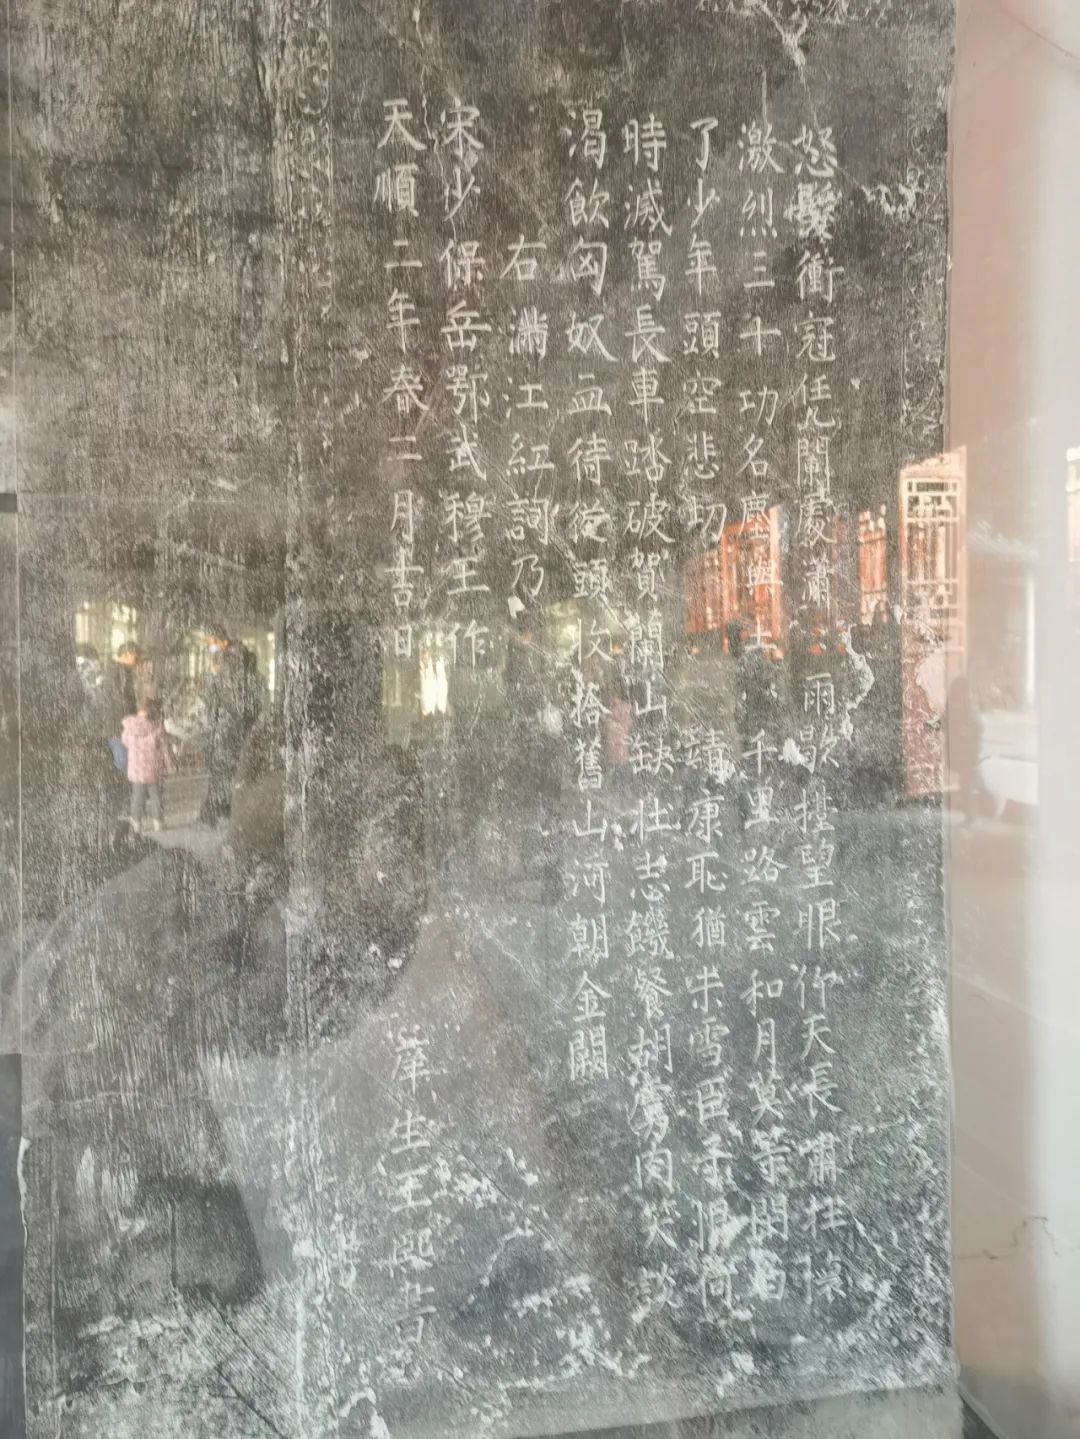 怒髮衝冠任九闌處瀟〻雨歇擡望眼仰天長嘯壮懷
激烈三十功名塵與土八千里路雲和月莫等閑白
了少年頭空悲切靖康恥猶未雪臣子恨何
時滅駕長車踏破賀蘭山缺壯志饑餐胡虜肉笑談
渴飲匈奴血待從頭收拾舊山河朝金闕
右滿江紅詞乃
宋少保岳鄂武穆王作
天順二年春二月吉日 庠生王熙書